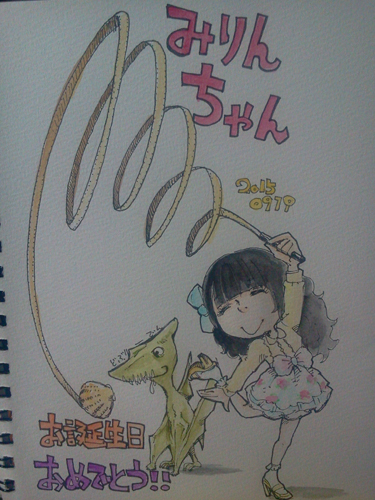 みりん
ちゃん
2015
0919
お誕生日
おめでとう!!